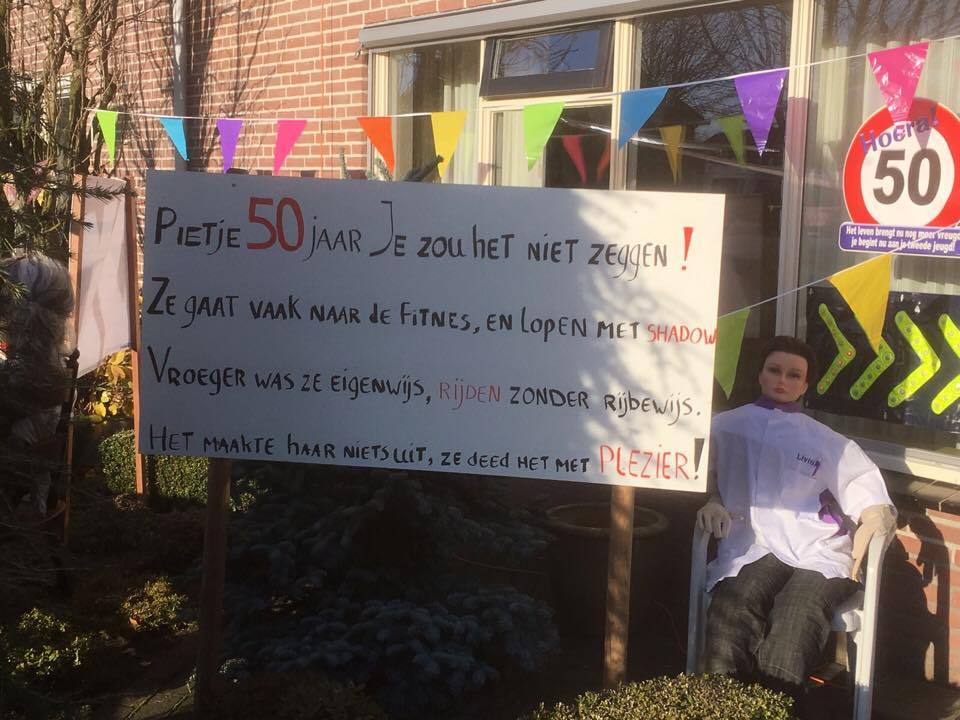 PIETJE 50 JAAR JE ZOU HET NIET ZEGGEN!
ZE GAAT VAAK NAAR DE FITNES, EN LOPEN MET SHADOW
VROEGER WAS ZE EIGENWIJS, RIJDEN ZONDER RIJBEWIJS.
HET MAAKTE HAAR NIETS UIT, ZE DEED HET MET PLEZIER!
Hoera!
50
Het leven brengt nu nog meer vreugd
je begint nu aan je tweede jeugd!